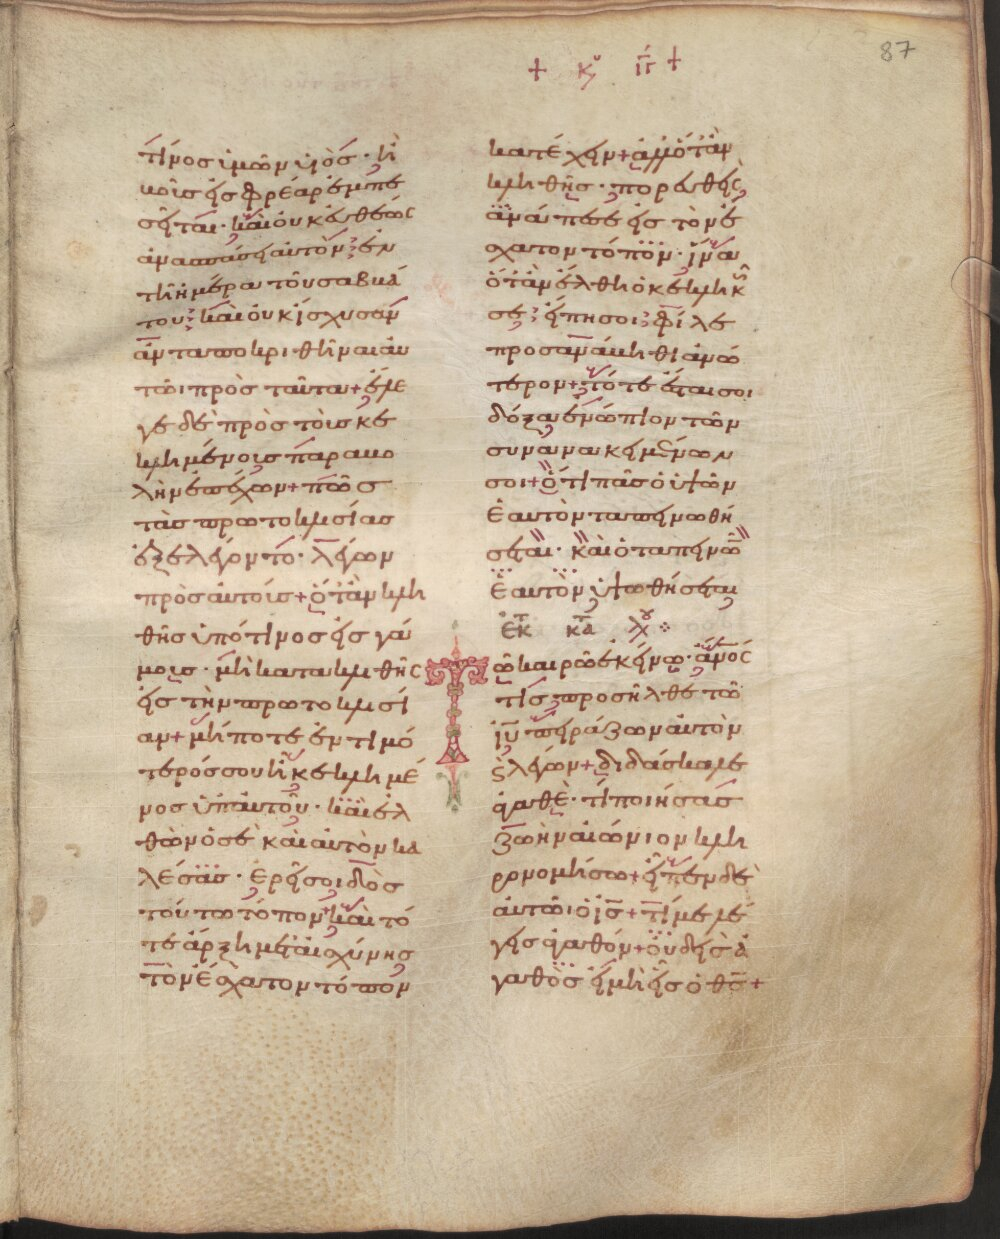 87
+ κυ ιγ +
τίνος ὑμῶν υἱός · ἢ
βοῦς εἰς φρέαρ ἐμπε
σεῖται · καὶ οὐκ εὐθέως
ἀνασπάσει αὐτὸν ἐν
τῆ ἡμέρα τοῦ σαββά
του καὶ οὐκ ἴσχυσαν
ἀνταποκριθῆναι αὐ
τῶι πρὸς ταῦτα + ἔλε
γε δὲ πρὸς τοὺς κε
κλημένους παραβο
λὴν ἐπέχων + πῶς
τὰς πρωτοκλησίας
ἐξελέγοντο · λέγων
πρὸς αὐτούς + ὅταν κλη
θῆς ὑπό τινος εἰς γά
μους · μὴ κατακλιθῆς
εἰς τὴν πρωτοκλησί
αν + μή ποτε ἐντιμό
τερός σου ἦ κεκλημέ
νος ὑπ αὐτοῦ · καὶ ἐλ
θὼν ὁ σὲ καὶ αὐτὸν κα
λέσας · ἐρεῖ σοι δὸς
τούτω τόπον καὶ τό
τε ἄρξη μετ αἰσχύνης
τὸν ἔσχατον τόπον
κατέχειν + ἀλλ ὅταν
κληθῆς · πορευθεὶς
ἀνάπεσε εἰς τὸν ἔσ
χατον τόπον · ἵνα
ὅταν ἔλθη ὁ κεκληκώς
σε εἴπη σοι φίλε
προσανάβηθι ἀνώ
τερον + τότε ἔσται σοι
δόξα ἐνώπιον τῶν
συνανακειμένων
σοι + ὅτι πᾶς ὁ ὑψῶν
ἑαυτὸν ταπεινωθή
σεται · καὶ ὁ ταπεινῶν
ἑαυτὸν ὑψωθήσεται
ἐκ κτ λου
Τῶ καιρῶ ἐκείνω · ἄνος
τίς προσῆλθε τῶ
ἰυ πειράζων αὐτὸν
ς λέγων + διδάσκαλε
ἀγαθὲ · τί ποιήσας
ζωὴν αἰώνιον κλη
ρονομήσω + εἶπεν δὲ
αὐτῶι ὁ ις + τί με λέ
γεις ἀγαθόν + οὐδεὶς ἀ
γαθὸς εἰ μὴ εἷς ὁ θς +